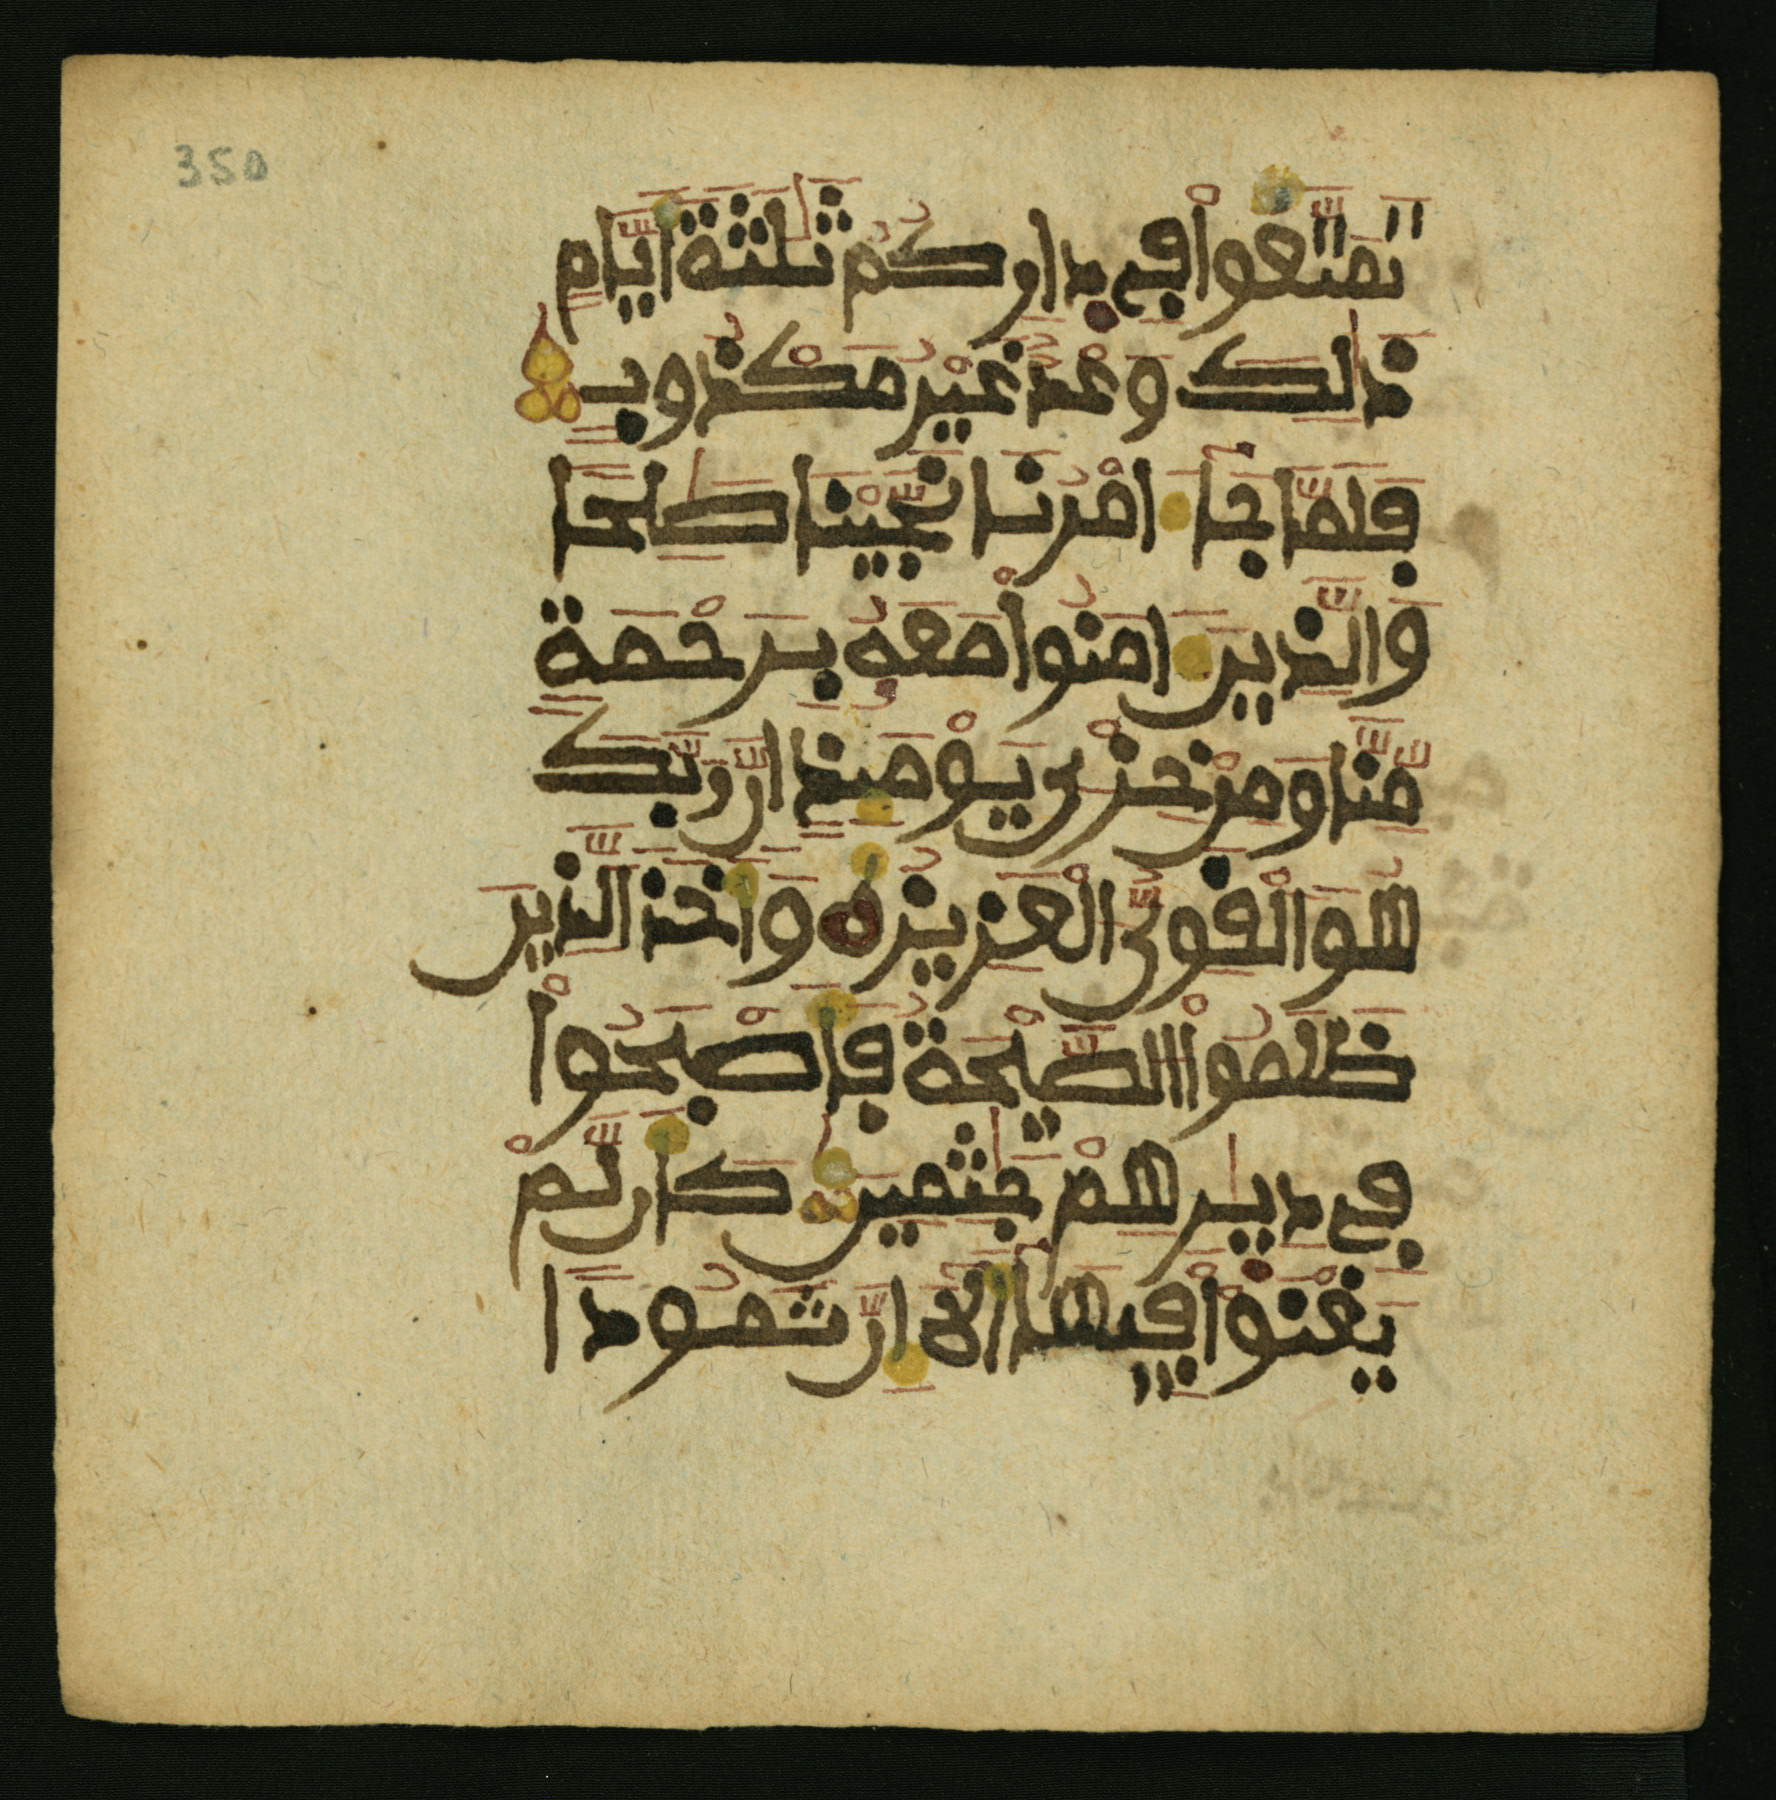 350
تَمَتَّعُواْ فِي دَارِكُمْ ثَلَٰثَةَ أَيَّامٍ
ذَٰلِكَ وَعْدٌ غَيْرُ مَكْذُوبٍ
فَلَمَّا جَآءَ امْرُنَا نَجَّيْنَا صَٰلِحًا
وَالَّذِينَ ءَامَنُواْ مَعَهُ بِرَحْمَةٍ
مِّنَّا وَمِنْ خِزْيِ يَوْمَئِذٍ اِنَّ رَبَّكَ
هُوَ الْقَوِيُّ الْعَزِيزُ ه وَأَخَذَ الَّذِينَ
ظَلَمُواْ الصَّيْحَةُ فَأَصْبَحُواْ
فِي دِيَٰرِهِمْ جَٰثِمِينَ كَأَن لَّمْ
يَغْنَوْاْ فِيهَآ أَلَا إِنَّ ثَمُودًا